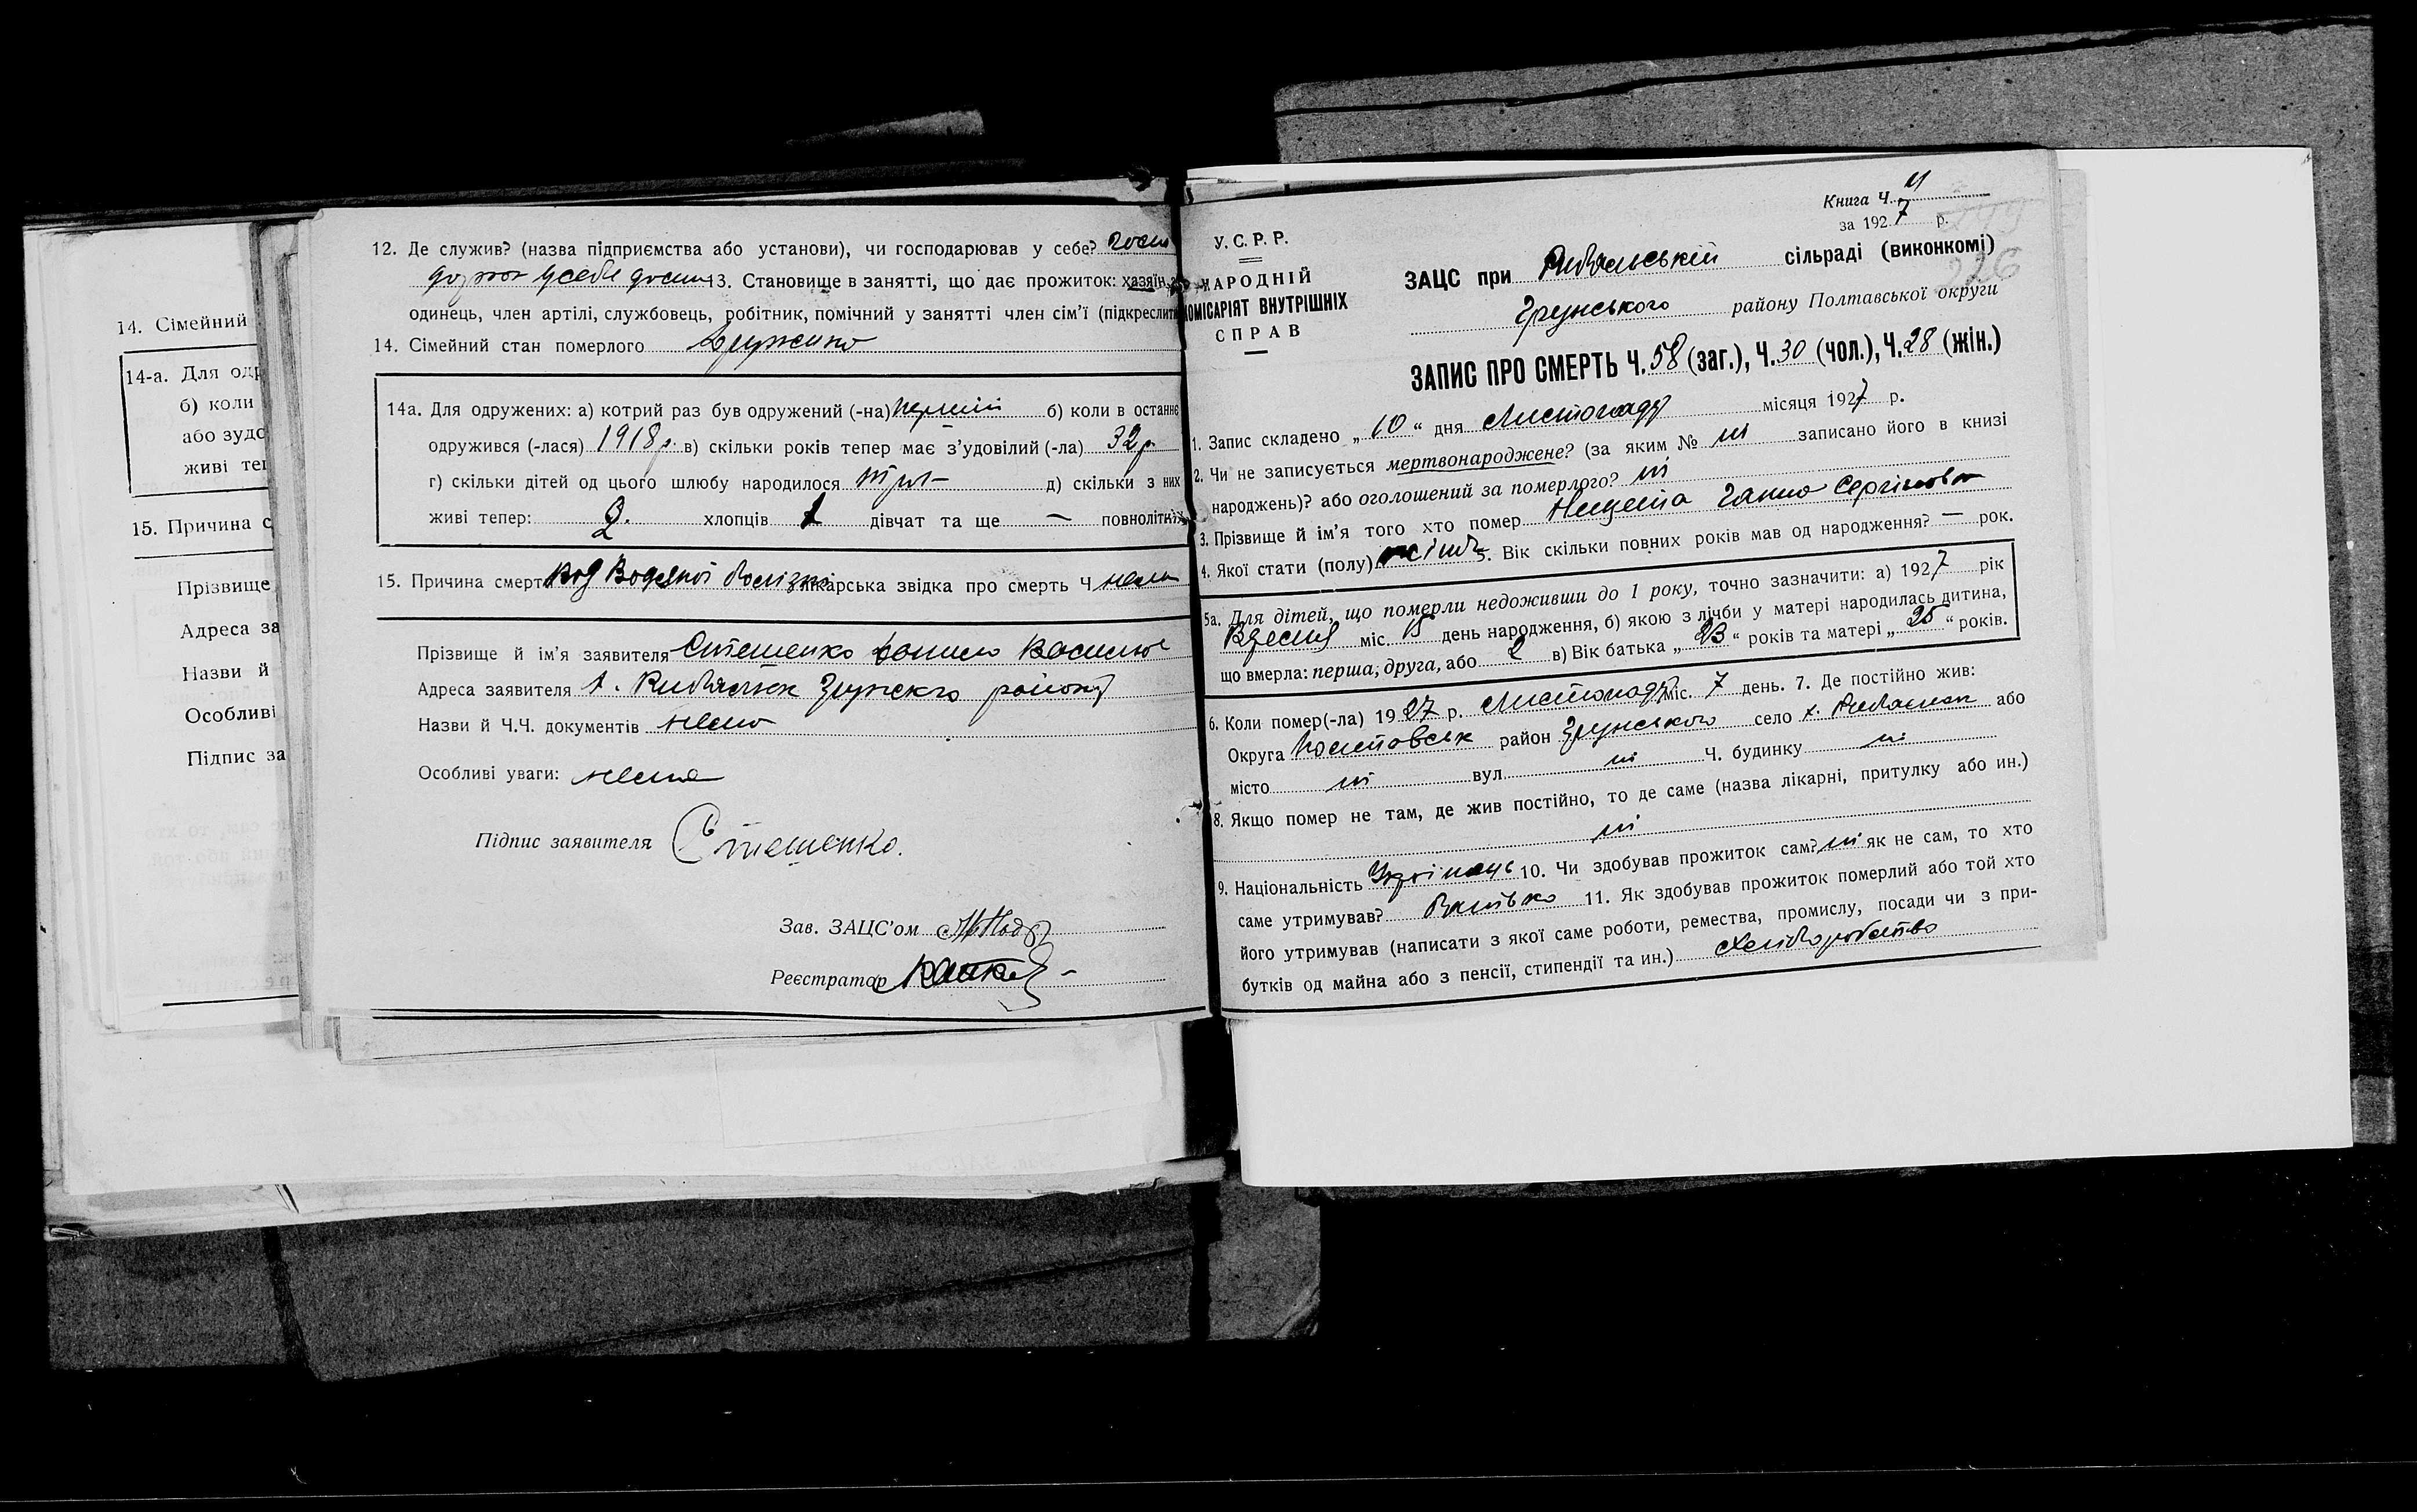 14. Сімейний
14-а. Для од
б) коли
або зудо
живі те
15. Причина с
Прізвище
Адреса за
Назви й
Особливі
Підпис за
12. Де служив? (назва підприємства або установи), чи господарював у себе?
у себе 13. Становище в занятті, що дає прожиток: хазяїн,
одинець, член артілі, службовець, робітник, помічний у занятті член сім’ї (підкреслити
14. Сімейний стан померлого
14а. Для одружених: а) котрий раз був одружений (-на) перший б) коли в останнє
одружився (-лася) 1918 р. в) скільки років тепер має з’удовілий (-ла) 32 р.
г) скільки дітей од цього шлюбу народилося три д) скільки з них
живі тепер: 2. хлопців 1 дівчат та ще — повнолітніх
15. Причина смерт Від Водяної лікарська звідка про смерть Ч нема
Прізвище й ім’я заявителя Стешенко
Адреса заявителя х. району
Назви й Ч.Ч. документів нема
Особливі уваги: нема
Підпис заявителя Стешенко.
Зав. ЗАЦС’ом
Реєстратор
Книга Ч.
за 1927 р.
226
У.С.Р.Р.
НАРОДНІЙ
КОМІСАРІЯТ ВНУТРІШНІХ
СПРАВ
ЗАЦС при сільраді (виконкомі)
Грунського району Полтавської округи
ЗАПИС ПРО СМЕРТЬ Ч. 58 (заг.), Ч. 30 (чол.), Ч. 28 (жін.)
1. Запис складено „ 10 “ дня Листопаду місяця 1927 р.
2. Чи не записується мертвонароджене? (за яким № ні записано його в книзі
народжень)? або оголошений за померлого? ні
3. Прізвище й ім’я того хто помер Ганна
4. Якої стати (полу) 5. Вік скільки повних років мав од народження? — рок.
5а. Для дітей, що померли недоживши до 1 року, точно зазначити: а) 1927 рік
Вресня міс. 15 день народження, б) якою з лічби у матері народилась дитина,
що вмерла: перша, друга, або 2 в) Вік батька „ 23 “ років та матері „ 25 “ років.
6. Коли помер(-ла) 1927 р. Листопаду міс. 7 день. 7. Де постійно жив:
Округа район Грунського село х. або
місто ні вул. ні Ч. будинку ні
8. Якщо помер не там, де жив постійно, то де саме (назва лікарні, притулку або ин.)
ні
9. Національність Украінець 10. Чи здобував прожиток сам? ні як не сам, то хто
саме утримував? Батько 11. Як здобував прожиток померлий або той хто
його утримував (написати з якої саме роботи, ремества, промислу, посади чи з при-
бутків од майна або з пенсії, стипендії та ин.) хліборобство